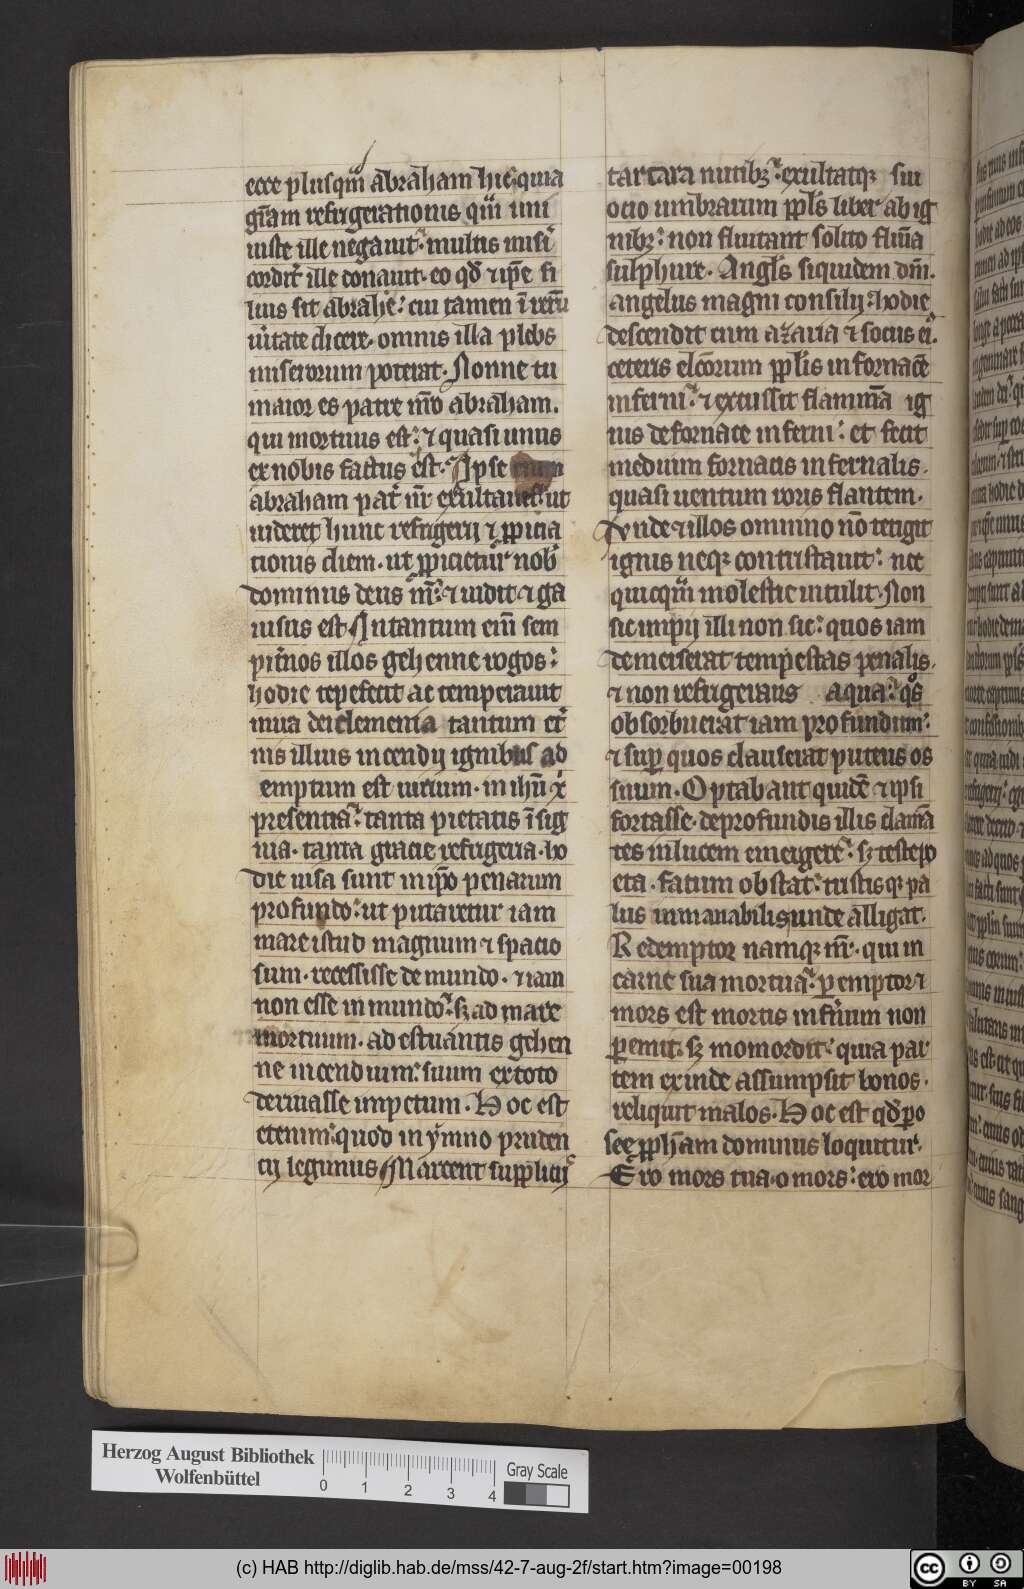 ecce plusqm̄ abraham hic quia
gr̄am refrigerationis qm̄ uni
iuste ille negauit multis misi
cordit ille donauit eo qd̄ ⁊ ip̄e fi
lius sit abrahe cui tamen ī rerū
ūitate dicere omnis illa plebs
miserorum poterat Nonne tu
maior es patre nr̄o abraham
qui mortuus est ⁊ quasi unus
ex nobis factus est Ipse enim
abraham pat̄ nr̄ exultauit ut
uideret hunc refrigerij ⁊ ꝓpicia
tionis diem ut ꝓpicietur nob
dominus deus nr̄ ⁊ uidit ⁊ ga
uisus est Intantum eni sem
pit̄nos illos gehenne rogos
hodie tepefecit ac temperauit
mira dei clementia tantum et̄
nis illius incendij ignibus ad
emptum est uirium in ihū xp̄i
presentia tanta pietatis īsig
nia tanta gracie refrigeria ho
die uisa sunt in ip̄o penarum
profundo ut putaretur iam
mare istud magnum ⁊ spacio
sum recessisse de mundo ⁊ iam
non esse in mundo sꝫ ad mare
mortuum ad estuantis gehen
ne incendium suum ex toto
deriuasse impetum Hoc est
etenim quod in ymno pruden
cij legimus Marcent supplicijs
tartara mitibꝫ exultatqꝫ sui
ocio umbrarum ppl̄s liber ab ig
nibꝫ non fluitant solito flumīa
sulphure Angl̄s siquidem dn̄i
angelus magni consilij hodie
descendit cum azaria ⁊ socijs ei
ceteris elc̄orum ppl̄is in fornacē
inferni ⁊ excussit flammā ig
nis de fornace inferni et fecit
medium fornacis infernalis
quasi uentum roris flantem
Vnde ⁊ illos omnino nō tetigit
ignis neqꝫ contristauit nec
quicqm̄ molestie intulit Non
sic impij illi non sic quos iam
demerserat tempestas penalis
⁊ non refrigerans aqua qos
obsorbuerat iam profundum
⁊ suꝑ quos clauserat puteus os
suum Optabant quidē ⁊ ipsi
fortasse de profundis illis clamā
tes in lucem emergere sꝫ teste po
eta fatum obstat tristisqꝫ pa
lus innanabilis unde alligat
Redemptor namqꝫ nr̄ qui in
carne sua mortua ꝑemptor ⁊
mors est mortis infn̄um non
ꝑemit sꝫ momordit quia par
tem exinde assumpsit bonos
reliquit malos Hoc est qd̄ ꝑ o
see ꝓph̄am dominus loquitur
Ero mors tua o mors ero mor
Herzog August Bibliothek
Wolfenbüttel
0 1 2 3 4
Gray Scale
(c) HAB http://diglib.hab.de/mss/42-7-aug-2f/start.htm?image=00198
cc BY SA